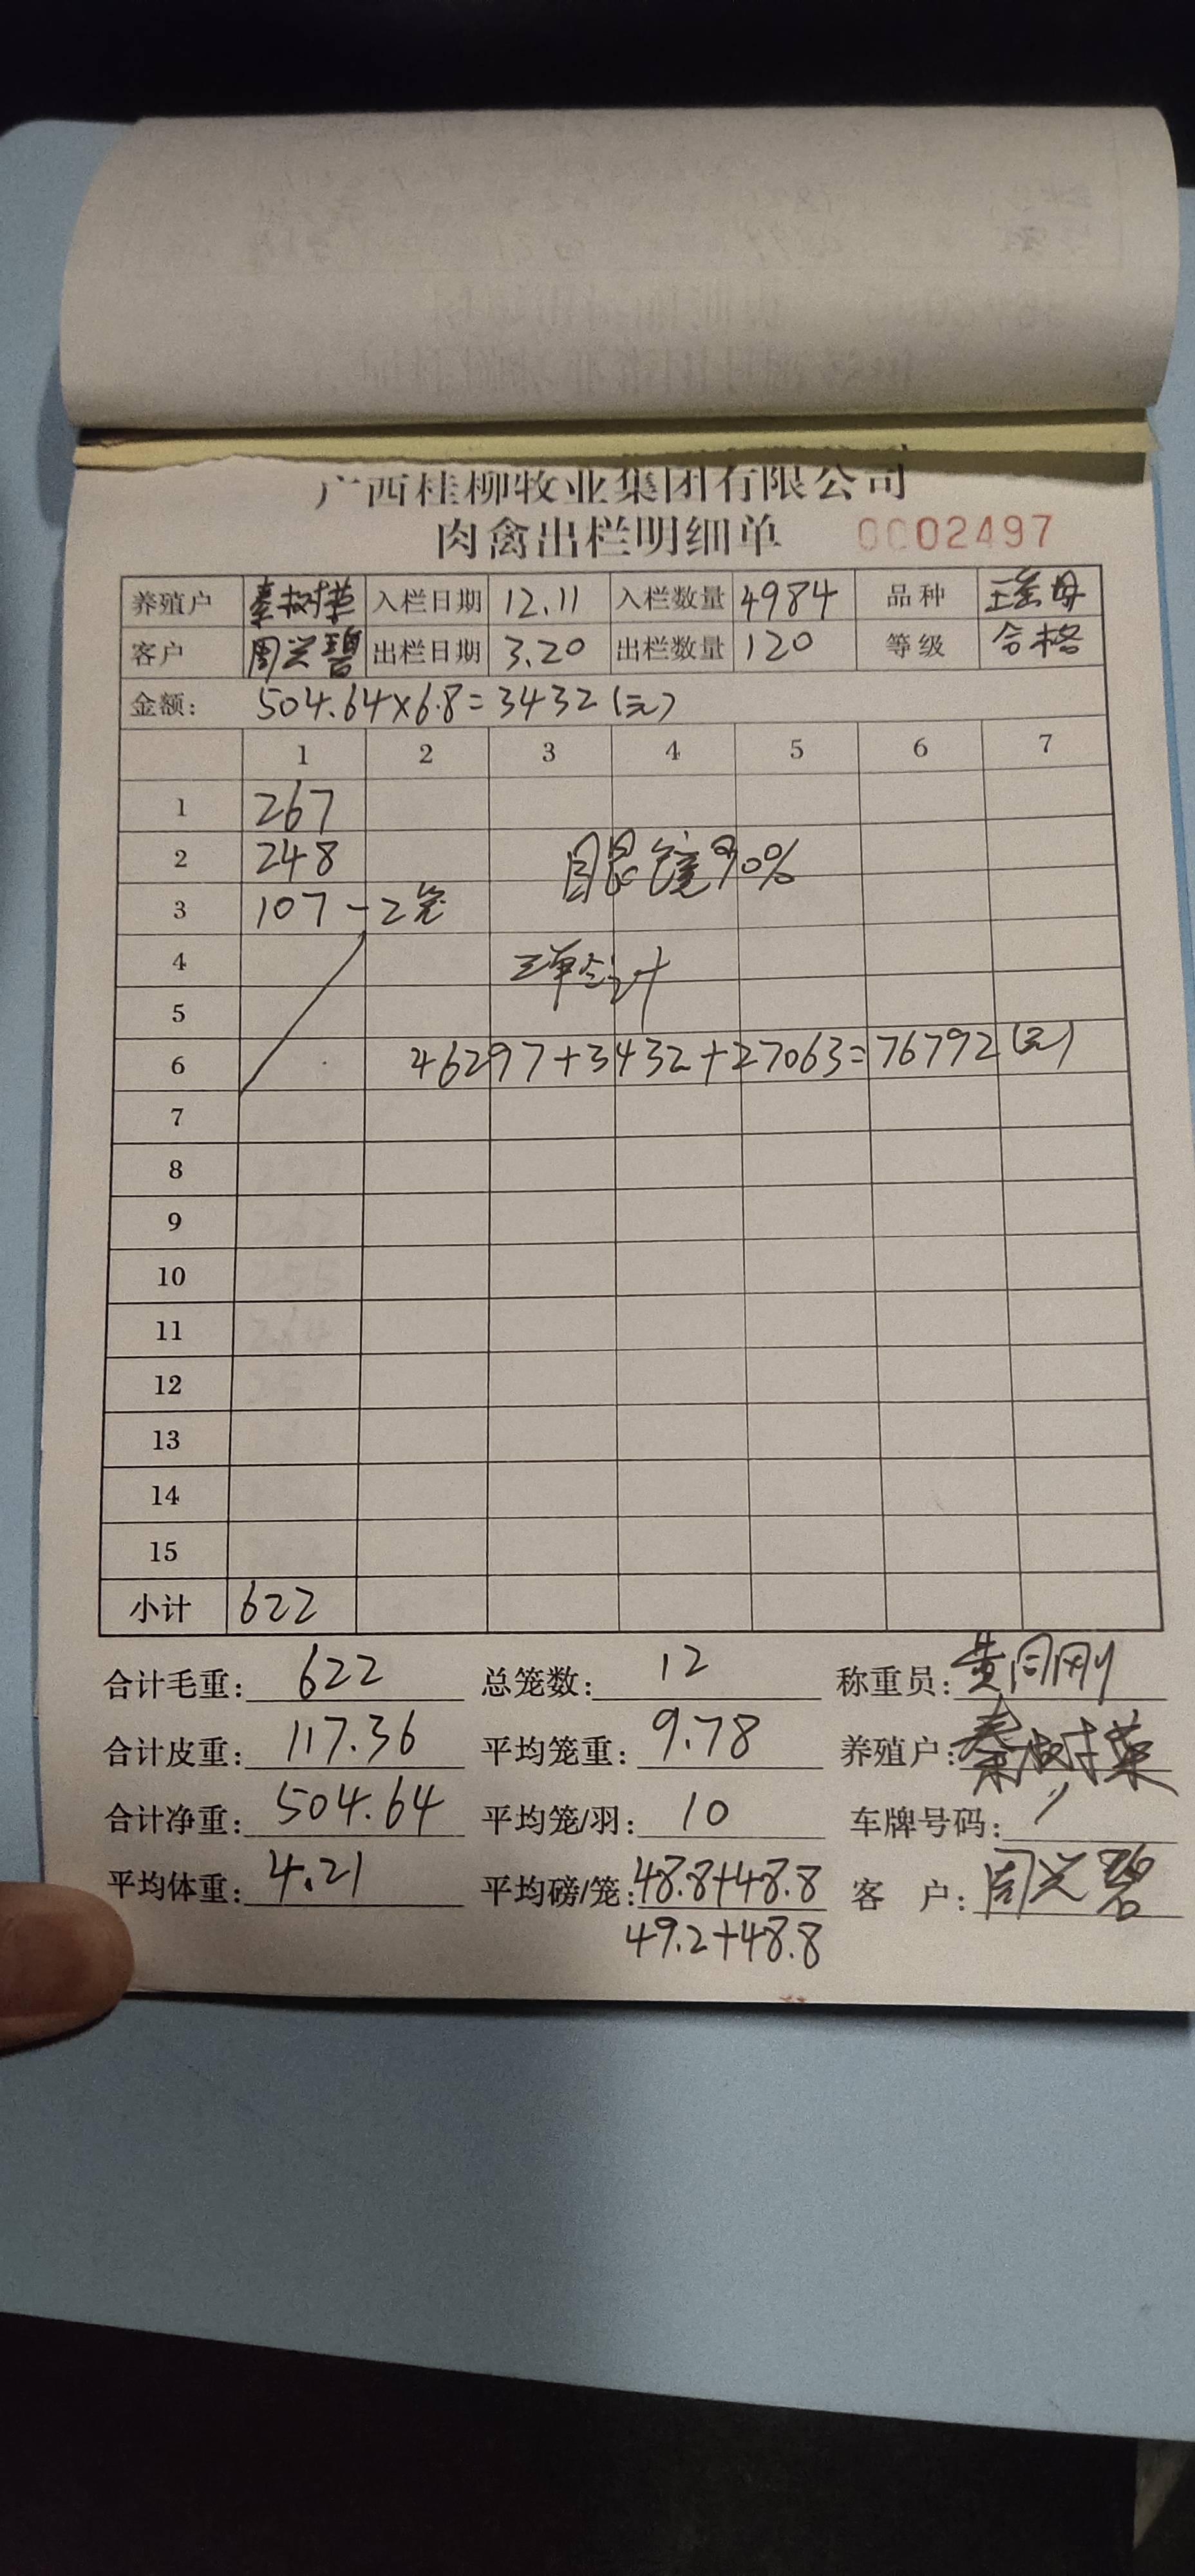 广西桂柳牧业集团有限公司
肉禽出栏明细单 0002497
养殖户 秦树荣 入栏日期 12.11 入栏数量 4984 品种
客户 周兴碧 出栏日期 3.20 出栏数量 120 等级 合格
金额: 504.64×6.8=3432(元)
1 2 3 4 5 6 7
1 267
2 248 眼镜90%
3 107-2笼
4 三单合计
5
6 46297+3432+27063=76792(元)
7
8
9
10
11
12
13
14
15
小计 622
合计毛重: 622 总笼数: 12 称重员: 黄同刚
合计皮重: 117.36 平均笼重: 9.78 养殖户: 秦树荣
合计净重: 504.64 平均笼/羽: 10 车牌号码: /
平均体重: 4.21 平均磅/笼: 48.8+48.8 客 户: 周兴碧
49.2+48.8